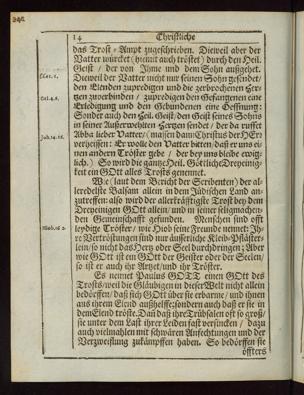 14 Christliche
das Trost-Ampt zugeschrieben. Dieweil aber der
Vatter würcket (hiemit auch tröstet) durch den Heil.
Geist / der von Ihme und dem Sohn außgehet.
Dieweil der Vatter nicht nur seinen Sohn gesendet /
den Elenden zupredigen und die zerbrochenen Her-
tzen zuverbinden / zupredigen den Gefangenen eine
Erledigung und den Gebundenen eine Oeffnung:
Sonder auch den Heil. Geist / den Geist seines Sohns
in seiner Außerwöhlten Hertzen sendet / der da ruffet
Abba lieber Vatter / massen dann Christus der HErr
verheissen: Er wolle den Vatter bitten / daß er uns ei-
nen andren Tröster gebe / der bey uns bleibe ewig-
lich.) So wird die gantze Heil. Göttliche Dreyeinig-
keit ein GOtt alles Trosts genennet.
Wie (laut dem Bericht der Scribenten) der al-
leredelste Balsam allein in dem Jüdischen Land an-
zutreffen: also wird der allerkräfftigste Trost bey dem
Dreyeinigen GOtt allein / und in seiner seligmachen-
den Gemeinschafft gefunden. Menschen sind offt
leydige Tröster / wie Hiob seine Freunde nennet: Ih-
re Vertröstungen sind nur äusserliche Kleib-Pflästter-
lein / so nicht das Hertz oder Seel durchdringen: Aber
wie GOtt ist ein GOtt der Geister oder der Seelen /
so ist er auch ihr Artzet / und ihr Tröster.
Es nennet Paulus GOTT einen GOtt des
Trosts / weil die Gläubigen in dieser Welt nicht allein
bedörffen / daß sich GOtt über sie erbarme / und ihnen
aus ihrem Elend außhelffe: sondern auch daß er sie in
dem Elend tröste. Dan daß ihre Trübsalen oft so groß /
sie unter dem Last ihrer Leiden fast versincken / dazu
auch vielmahlen mit schwären Anfechtungen und der
Verzweiflung zukämpffen haben. So bedörffen sie
öffters
Gal.4.6.
Joh.14.16.
Hiob.16 2.